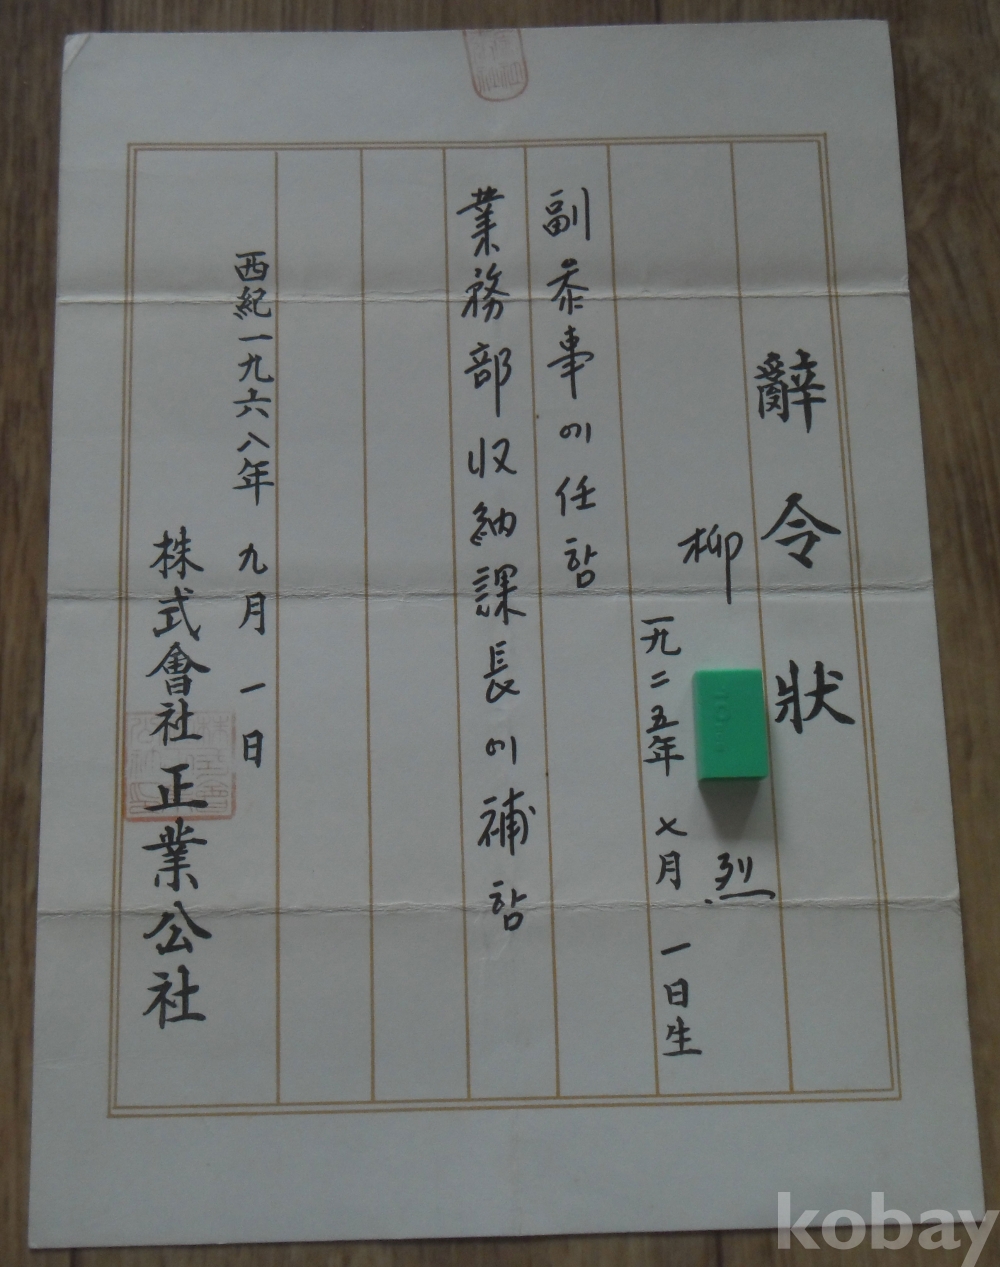 辭令狀
柳 烈
一九二五年 七月 一日生
副參事에任함
業務部収納課長에補함
西紀一九六八年 九月 一日
株式會社正業公社
kobay